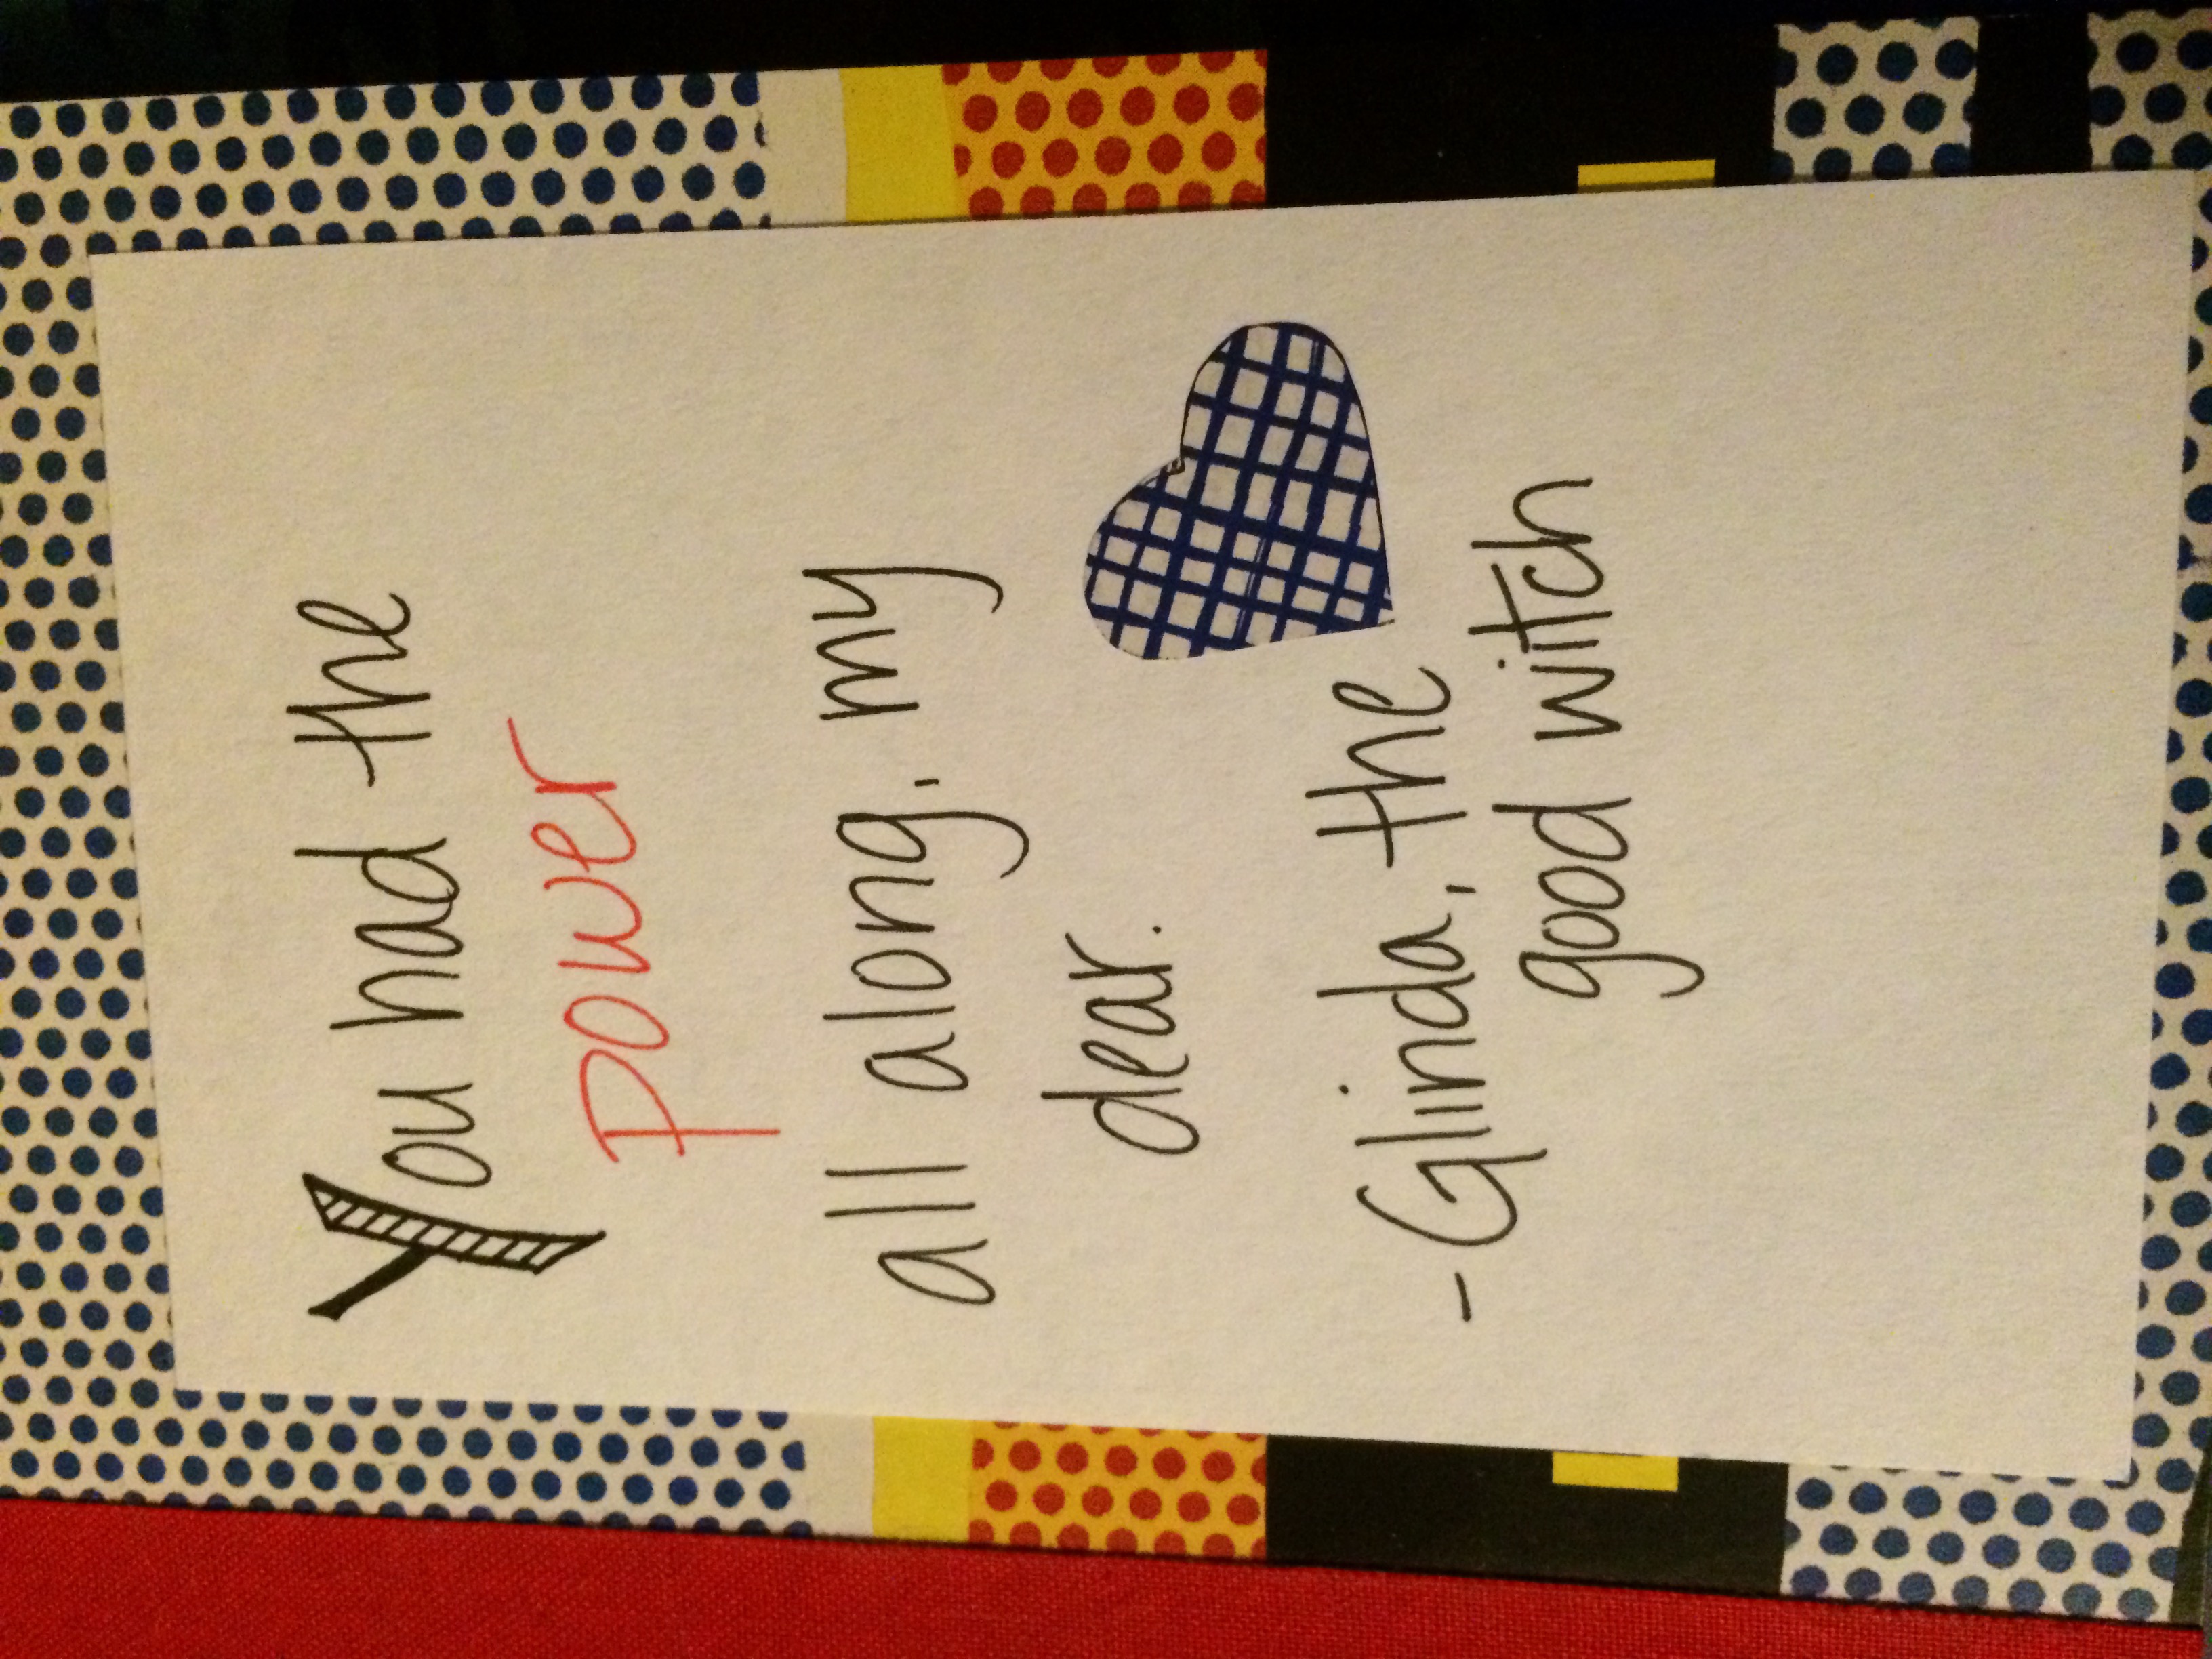 You had the
power
all along, my
dear.
-Glinda, the
good witch